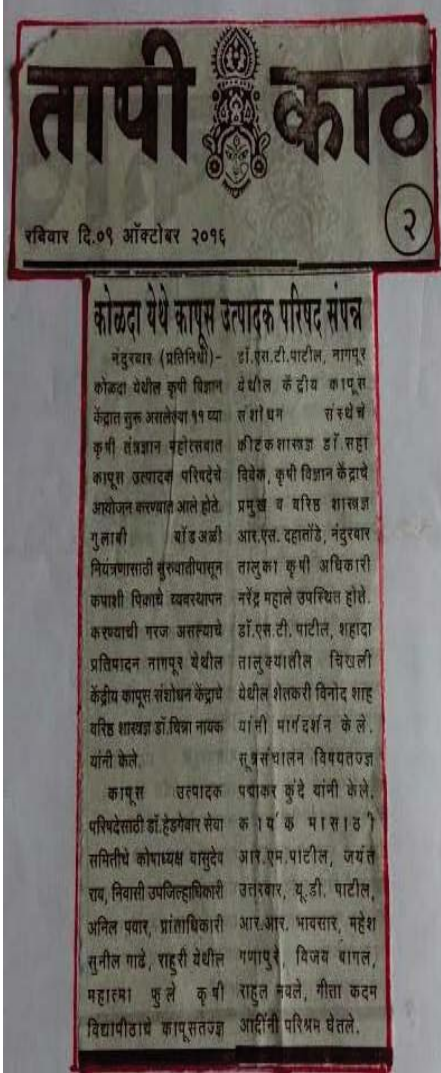 तापी काठ
रविवार दि.०९ ऑक्टोबर २०१६
२
कोळदा येथे कापूस उत्पादक परिषद संपन्न
नंदुरबार (प्रतिनिधी)-
कोळदा येथील कृषी विज्ञान
केंद्रात सुरू असलेल्या ११ व्या
कृषी तंत्रज्ञान महोत्सवात
कापूस उत्पादक परिषदेचे
आयोजन करण्यात आले होते.
गुलाबी बोंडअळी
नियंत्रणासाठी सुरुवातीपासून
कपाशी पिकाचे व्यवस्थापन
करण्याची गरज असल्याचे
प्रतिपादन नागपूर येथील
केंद्रीय कापूस संशोधन केंद्राचे
वरिष्ठ शास्त्रज्ञ डॉ.चिन्ना नायक
यांनी केले.
कापूस उत्पादक
परिषदेसाठी डॉ.हेडगेवार सेवा
समितीचे कोषाध्यक्ष वासुदेव
राय, निवासी उपजिल्हाधिकारी
अनिल पवार, प्रांताधिकारी
सुनील गाढे, राहुरी येथील
महात्मा फुले कृषी
विद्यापीठाचे कापूसतज्ज्ञ
डॉ.एस.टी.पाटील, नागपूर
येथील केंद्रीय कापूस
संशोधन संस्थेचे
कीटकशास्त्रज्ञ डॉ.सहा
विवेक, कृषी विज्ञान केंद्राचे
प्रमुख व वरिष्ठ शास्त्रज्ञ
आर.एस. दहातोंडे, नंदुरबार
तालुका कृषी अधिकारी
नरेंद्र महाले उपस्थित होते.
डॉ.एस.टी. पाटील, शहादा
तालुक्यातील चिखली
येथील शेतकरी विनोद शाह
यांनी मार्गदर्शन केले.
सूत्रसंचालन विषयतज्ज्ञ
पद्माकर कुंदे यांनी केले.
कार्यक्रमासाठी
आर.एम.पाटील, जयंत
उत्तरवार, यू.डी. पाटील,
आर.आर. भावसार, महेश
गणापुरे, विजय बागल,
राहुल नवले, गीता कदम
आदींनी परिश्रम घेतले.